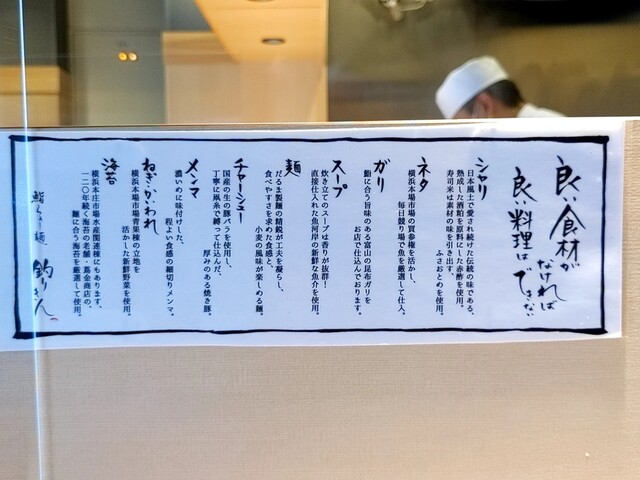 良い食材が
なければ
良い料理は
できない
シャリ
日本風土で愛され続けた伝統の味である、
熟成した酒粕を原料にした赤酢を使用。
寿司米は素材の味を引き出す、
ふさおとめを使用。
ネタ
横浜本場市場の買参権を活かし、
毎日競り場で魚を厳選して仕入。
ガリ
鮨に合う旨味のある富山の昆布ガリを
お店で仕込んでおります。
スープ
炊き立てのスープは香りが抜群!
直接仕入れた魚河岸の新鮮な魚介を使用。
麺
だるま製麺の精鋭が工夫を凝らし、
食べやすさを求めた食感と、
小麦の風味が楽しめる麺。
チャーシュー
国産の生の豚バラを使用し、
丁寧に凧糸で縛って仕込んだ、
厚みのある焼き豚。
メンマ
濃いめに味付けした、
程よい食感の細切りメンマ。
ねぎ・かいわれ
横浜本場市場青果棟の立地を
活かした新鮮野菜を使用。
海苔
横浜本庄市場水産関連棟にもあります、
一二〇年続く海苔の老舗・蔦金商店の、
麺に合う海苔を厳選して使用。
鮨らー麺 釣りきん。